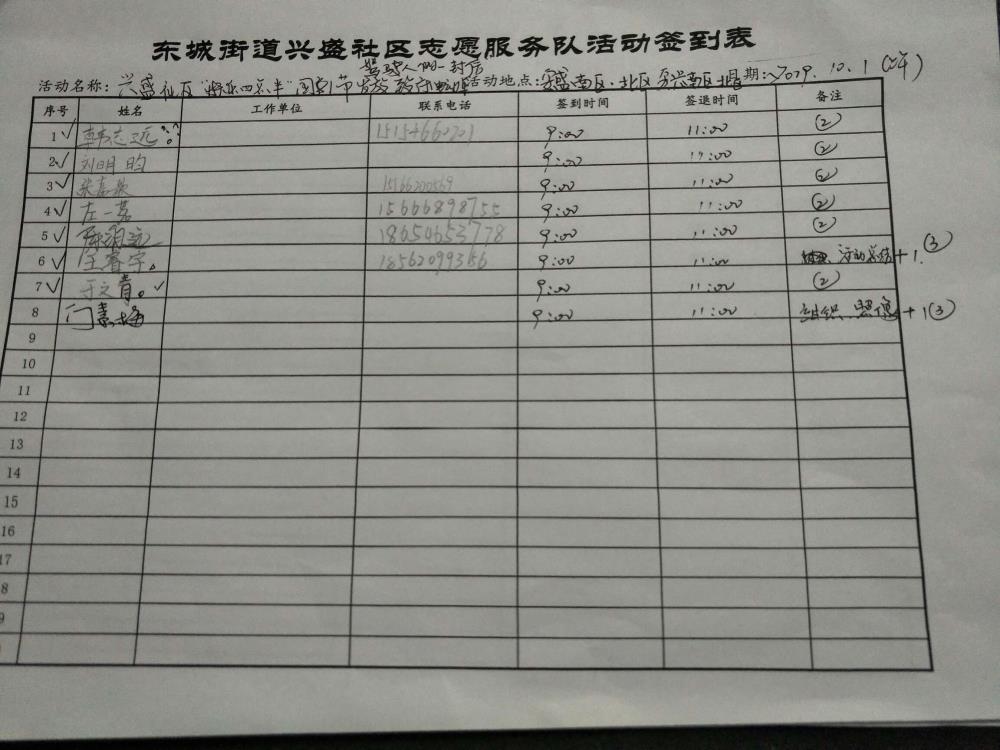 东城街道兴盛社区志愿服务队活动签到表
驾驶人的一封信
活动名称：兴盛社区"快乐四点半"国庆节发放 活动地点：安盛南区、北区 东兴南区北区 日期：2019.10.1（下午）
序号 姓名 工作单位 联系电话 签到时间 签退时间 备注
1 ✓ 韩志远 15154660701 9:00 11:00 ②
2 ✓ 刘明昀 9:00 11:00 ②
3 ✓ 张嘉 15166200569 9:00 11:00 ②
4 ✓ 左一茗 15666898755 9:00 11:00 ②
5 ✓ 陈润远 18654653778 9:00 11:00 ②
6 ✓ 王睿宇 18562099366 9:00 11:00 活动总结+1.③
7 ✓ 于文青 ✓ 9:00 11:00 ②
8 门素梅 9:00 11:00 组织、照像+1③
9
10
11
12
13
14
15
16
17
8
9